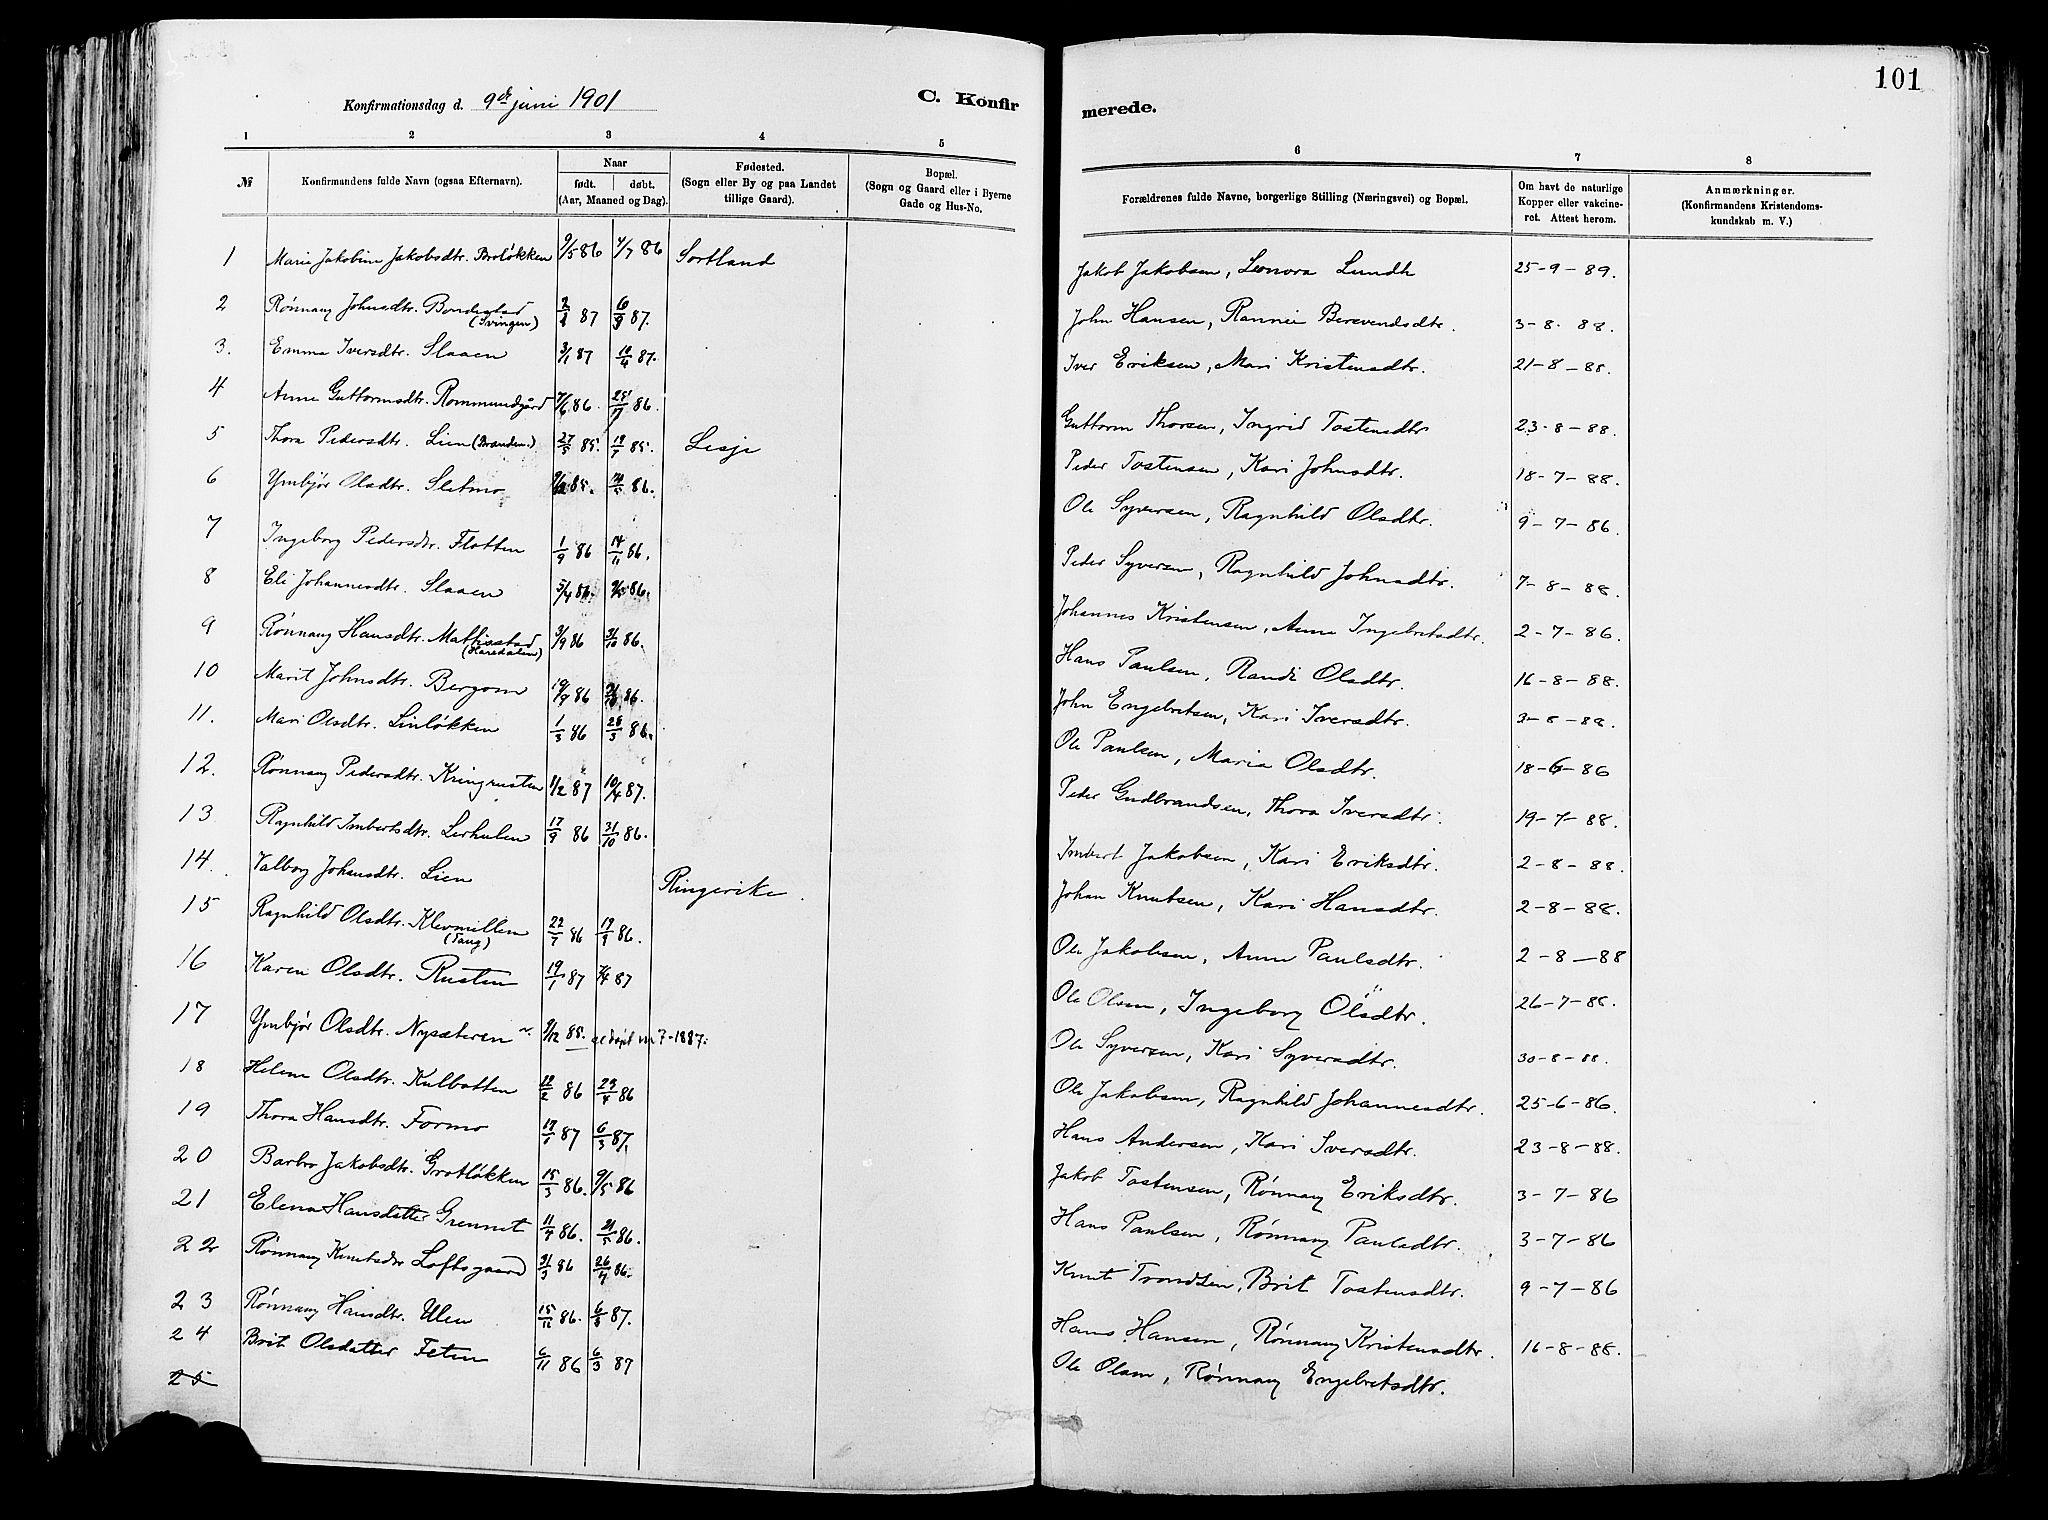 101
Konfirmationsdag d. 9de juni 1901
C. Konfir
merede.
1 2 3 4 5
6 7 8
№
Konfirmandens fulde Navn (ogsaa Efternavn).
Naar
født. døbt.
(Aar, Maaned og Dag).
Fødested.
(Sogn eller By og paa Landet
tillige Gaard).
Bopæl.
(Sogn og Gaard eller i Byerne
Gade og Hus-No.
Forældrenes fulde Navne, borgerlige Stilling (Næringsvei) og Bopæl.
Om havt de naturlige
Kopper eller vakcine-
ret. Attest herom.
Anmærkninger.
(Konfirmandens Kristendoms-
kundskab m. V.)
1 Maria Jakobine Jakobsdtr. Broløkken 9/5 86 4/7 86 Sortland Jakob Jakobsen, Leonora Lundh 25-9-89.
2 Rønnaug Johnsdtr. Bondestad 87 87. John Hansen, Rannei Berevendsdtr. 3-8-88.
(Svingen)
3. Emma Iversdtr. Slaaen 3/1 87 10/4 87. Iver Eriksen, Mari Kristensdtr. 21-8-88.
4 Anne Guttormsdtr. Rommundgård 7/6 86. 86. Guttorm Thorsen, Ingrid Tostensdtr 23-8-88.
5 Thora Pedersdtr. Lien (Branden.) 27/5 85. 19/7 85. Lesje Peder Tostensen, Kari Johnsdtr. 18-7-88.
6 Ymbjør Olsdtr. Sletmo 85. 86. Ole Syversen, Ragnhild Olsdtr. 9-7-86.
7 Ingeborg Pedersdtr. Flatten 1/9 86 14/11 86. Peder Syversen, Ragnhild Johnsdtr. 7-8-88.
8 Eli Johannesdtr. Slaaen 5/4 86. 86. Johannes Kristensen, Anne Ingebretsdtr. 2-7-86.
9 Rønnaug Hansdtr. Mathisstad 3/9 86 31/10 86. Hans Paulsen, Randi Olsdtr. 16-8-88.
(Haredalen)
10 Marit Johnsdtr. Bergom 19/9 86 86. John Engebretsen, Kari Iversdtr. 3-8-88.
11. Mari Olsdtr. Linløkken 1/3 86 28/3 86. Ole Paulsen, Maria Olsdtr. 18-6-86
12. Rønnaug Pedersdtr. Kringrusten 1/2 87 10/4 87. Peder Gudbrandsen, Thora Iversdtr. 19-7-88.
13 Ragnhild Imbertsdtr. Lerhulen 17/9 86 31/10 86. Imbert Jakobsen, Kari Eriksdtr. 2-8-88.
14. Valborg Johansdtr. Lien Ringerike Johan Knutsen, Kari Hansdtr. 2-8-88.
15 Ragnhild Olsdtr. Klevmillen 22/7 86 19/9 86. Ole Jakobsen, Anne Paulsdtr. 2-8-88
16 Karen Olsdtr. Rusten 19/1 87 87 Ole Olsen, Ingeborg Olsdtr. 26-7-88.
17 Ymbjør Olsdtr. Nysæteren 9/12 85. 7-1887. Ole Syversen, Kari Syversdtr. 30-8-88.
18 Helene Olsdtr. Kulbotten 12/2 86 29/4 86 Ole Jakobsen, Ragnhild Johannesdtr. 25-6-86.
19 Thora Hansdtr. Formo 17/1 87 6/3 87. Hans Andersen, Kari Iversdtr. 23-8-88.
20 Barbro Jakobsdtr. Grotløkken 15/3 86. 9/5 86 Jakob Tostensen, Rønnaug Eriksdtr. 3-7-86
21 Elena Hansdatter Grennet 11/4 86. 31/5 86. Hans Paulsen, Rønnaug Paulsdtr. 3-7-86
22 Rønnaug Knutsdtr Loftsgaard 31/3 86 26/4 86. Knut Trondsen, Brit Tostensdtr. 9-7-86
23 Rønnaug Hansdtr. Ulen 15/11 86. 6/3 87. Hans Hansen, Rønnaug Kristensdtr. 16-8-88.
24 Brit Olsdatter Feten 6/11 86 6/3 87 Ole Olsen, Rønnaug Engebretsdtr.
25